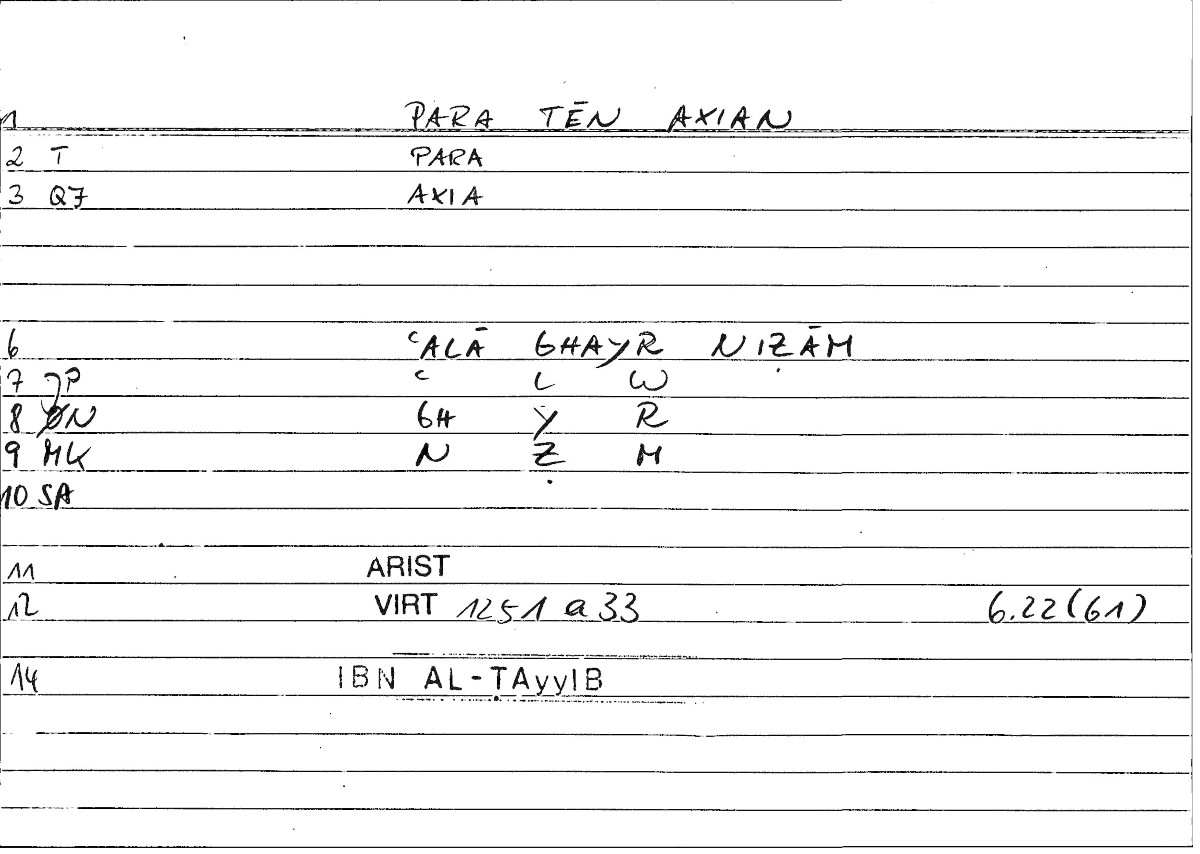 1 PARA TĒN AXIAN
2 T PARA
3 Q7 AXIA
6 ʿALĀ GHAYR NIẒĀM
7 JP ʿ L W
8 ØN GH Y R
9 MK N Ẓ M
10 SA
11 ARIST
12 VIRT 1251 a 33 6.22(61)
14 IBN AL-ṬAyyIB